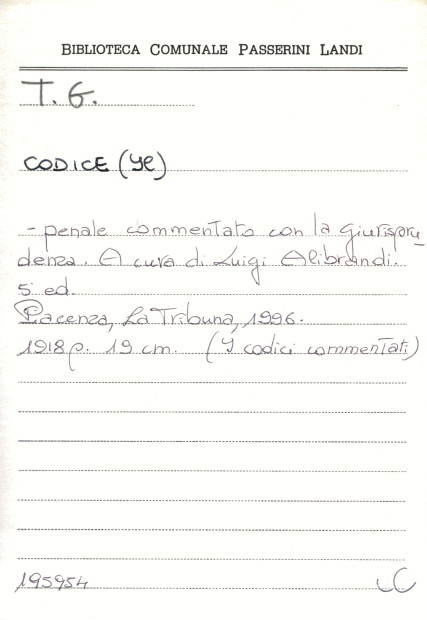 BIBLIOTECA COMUNALE PASSERINI LANDI
T. G.
CODICE (Il)
- penale commentato con la giurispru
denza. A cura di Luigi Alibrandi.
5 ed.
Piacenza, La Tribuna, 1996.
1918 p. 19 cm. (I codici commentati)
195954